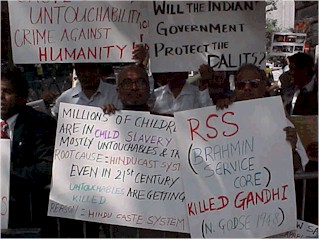 UNTOUCHABILITY
CRIME AGAINST
HUMANITY!
WILL THE INDIAN
GOVERNMENT
PROTECT THE
DALITS?
MILLIONS OF CHILDREN
ARE IN CHILD SLAVERY
MOSTLY UNTOUCHABLES &
ROOT CAUSE = HINDU CASTE SYSTEM
EVEN IN 21ST CENTURY
UNTOUCHABLES ARE GETTING
KILLED
REASON = HINDU CASTE SYSTEM
RSS
(BRAHMIN
SERVICE
CORE)
KILLED GANDHI
(N. GODSE 1948)